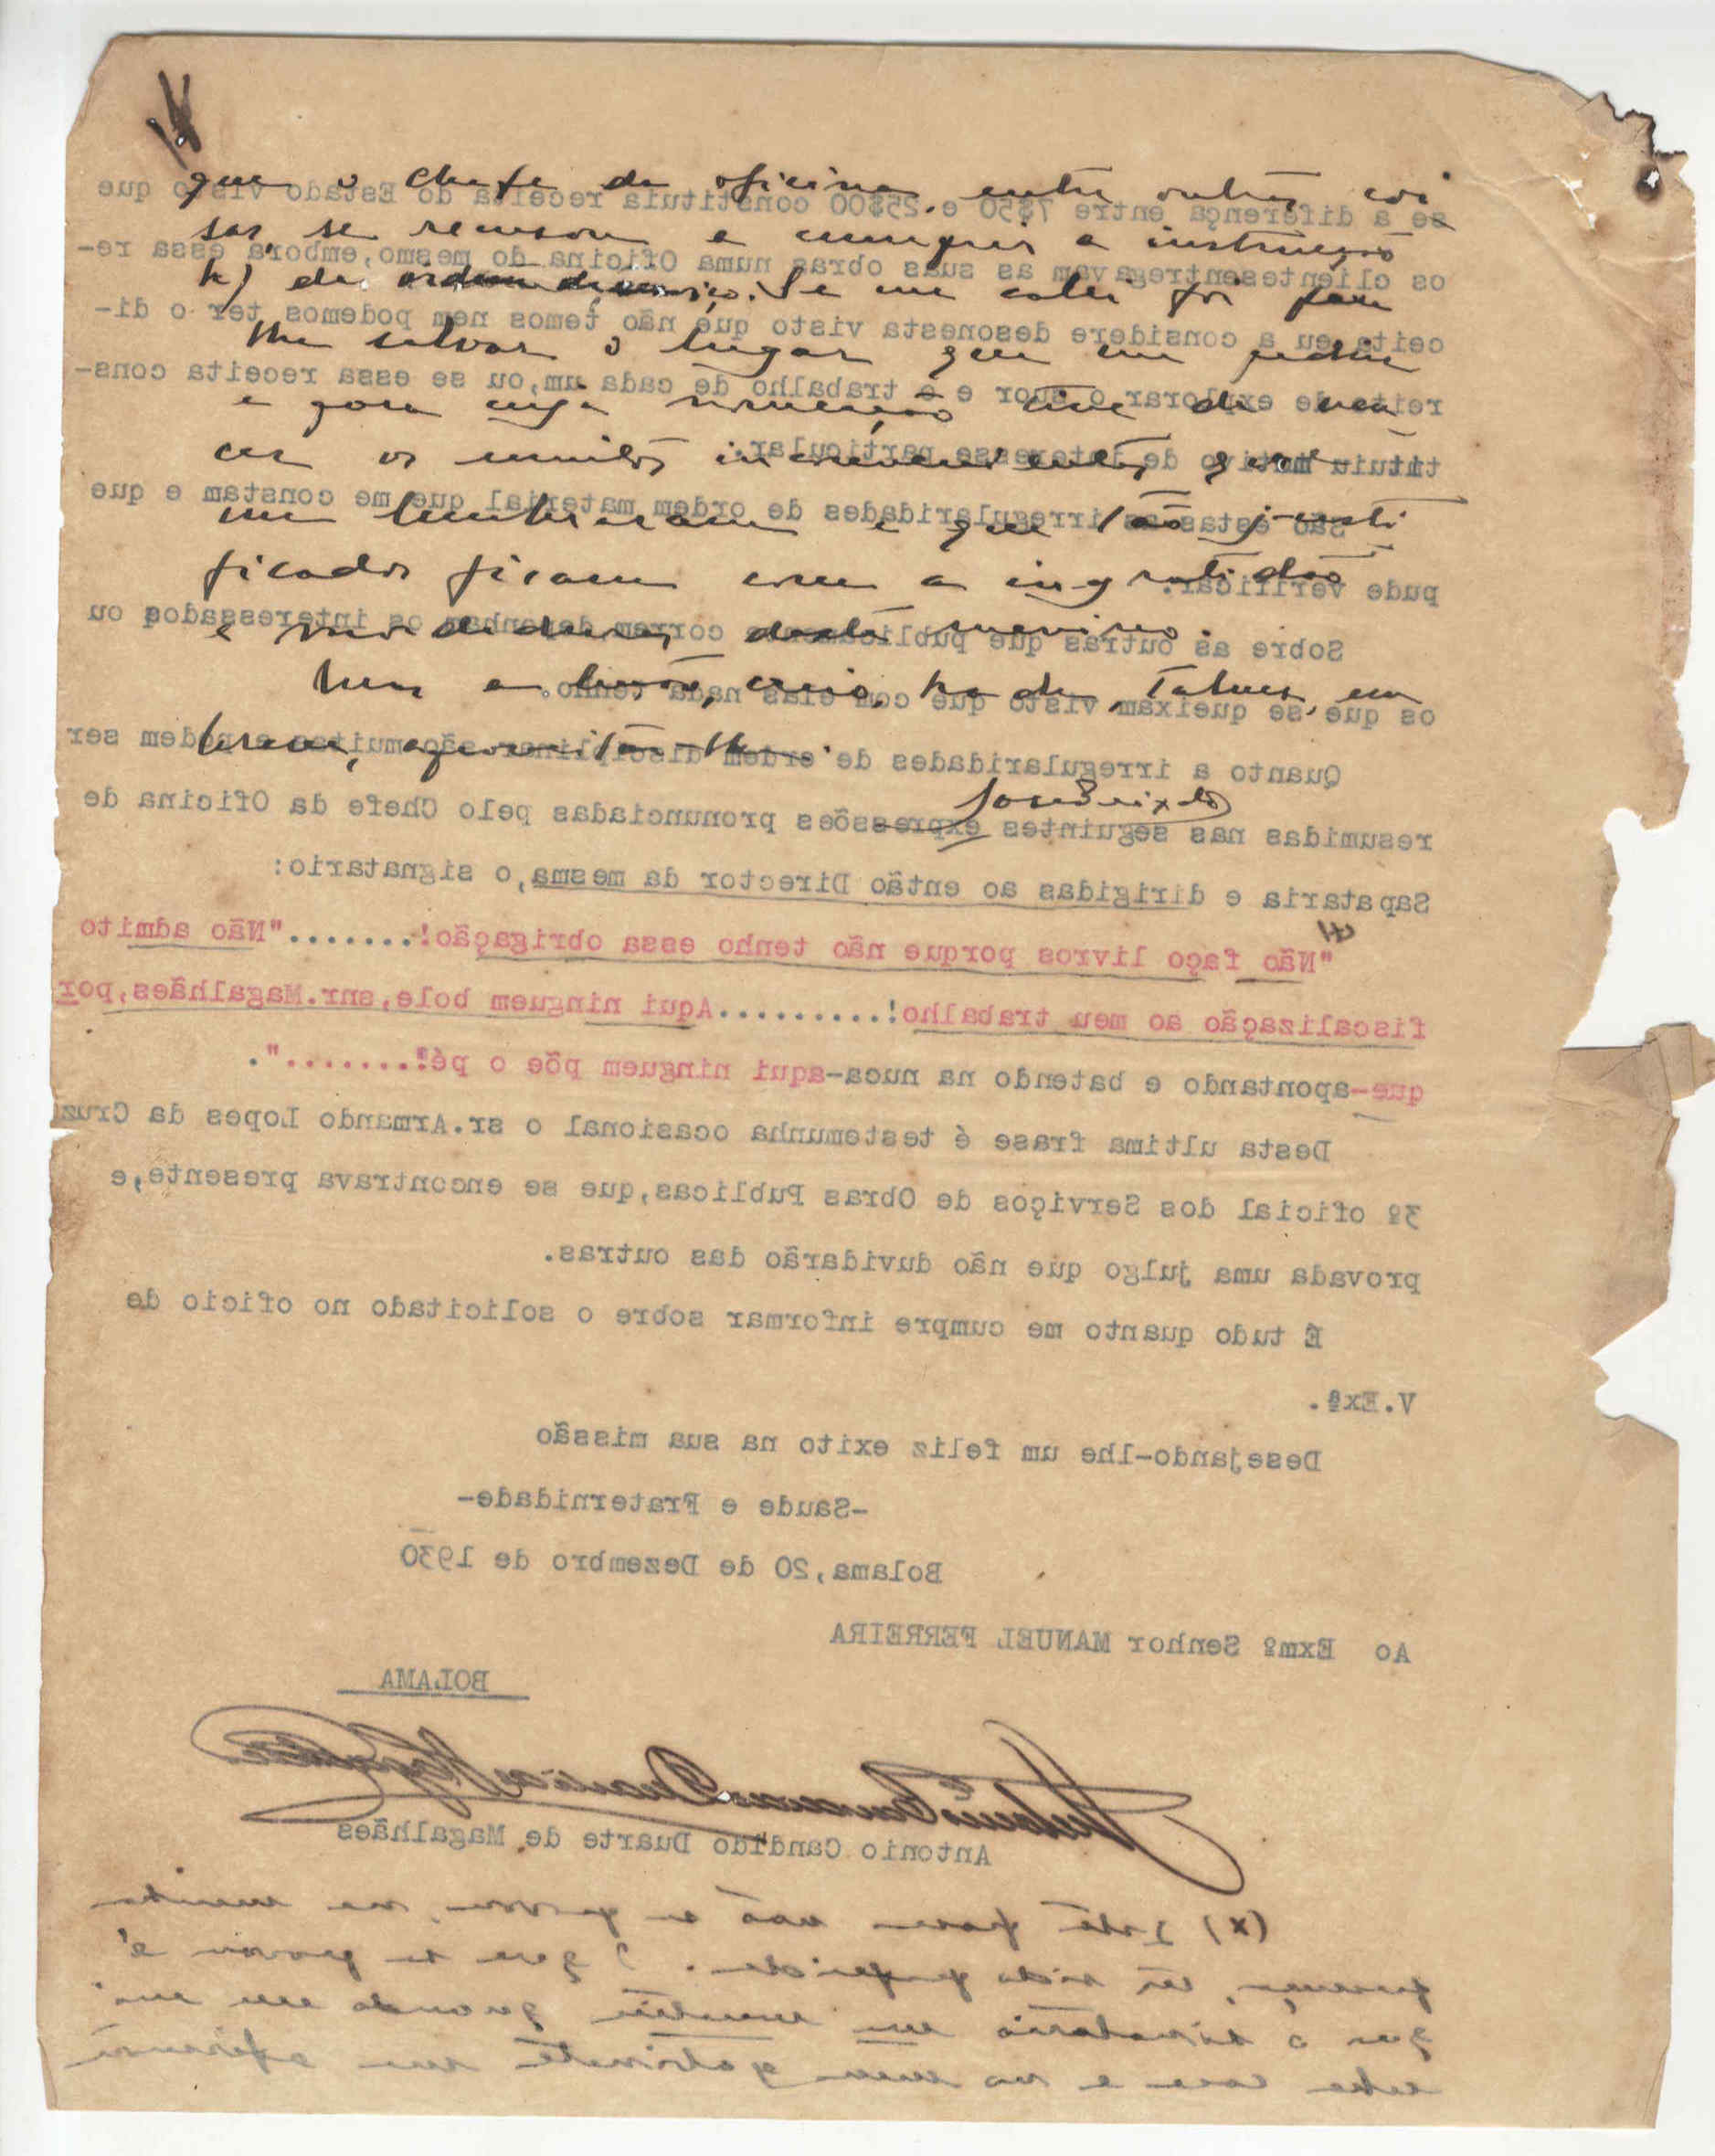 que o chefe da oficina, entre outras coi
sas se recusou a cumprir a instrução
h) da ordem de serviço. Se me calei foi para
lhe salvar o lugar que me pediu
e para cuja nomeação tive de ven
cer os muitos inconvenientes que
me lembraram e que tão justi
ficados ficam com a ingratidão
e
Mas a lição, creio, ha de talvez, em
breve, aproveitar-lhe.
se a diferença entre 7$50 e 25$00 constituia receita do Estado visto que
os clientesentregavam as suas obras numa Oficina do mesmo, embora essa re-
ceita eu a considere desonesta visto que não temos nem podemos ter o di-
reito de explorar o suor e o trabalho de cada um, ou se essa receita cons-
tituiu motivo de interesse particular.
São estas as irregularidades de ordem material que me constam e que
pude verificar.
Sobre as outras que publicamente correm desenham os interessados ou
os que se queixam, visto que com elas nada tenho.
Quanto a irregularidades de ordem disciplinar são muitas e podem ser
resumidas nas seguintes expressões pronunciadas pelo Chefe da Oficina de
Sapataria e dirigidas ao então Director da mesma, o signatario:
"Não faço livros porque não tenho essa obrigação!......."Não admito
fiscalização ao meu trabalho!..........Aqui ninguem bole, snr. Magalhães, por
que-apontando e batendo na nuca-aqui ninguem põe o pé!"........".
Desta ultima frase é testemunha ocasional o sr. Armando Lopes da Cruz
3º oficial dos Serviços de Obras Publicas, que se encontrava presente, e
provada uma julgo que não duvidarão das outras.
É tudo quanto me cumpre informar sobre o solicitado no oficio de
V. Exª.
Desejando-lhe um feliz exito na sua missão
-Saude e Fraternidade-
Bolama, 20 de Dezembro de 1930
Ao Exmº Senhor MANUEL FERREIRA
BOLAMA
Antonio Candido Duarte de Magalhães
Antonio Candido Duarte de Magalhães
(x) Esta frase não a provo, na minha
presença, ter sido proferida. O que se provou é
que o
esta casa e no meu gabinete me